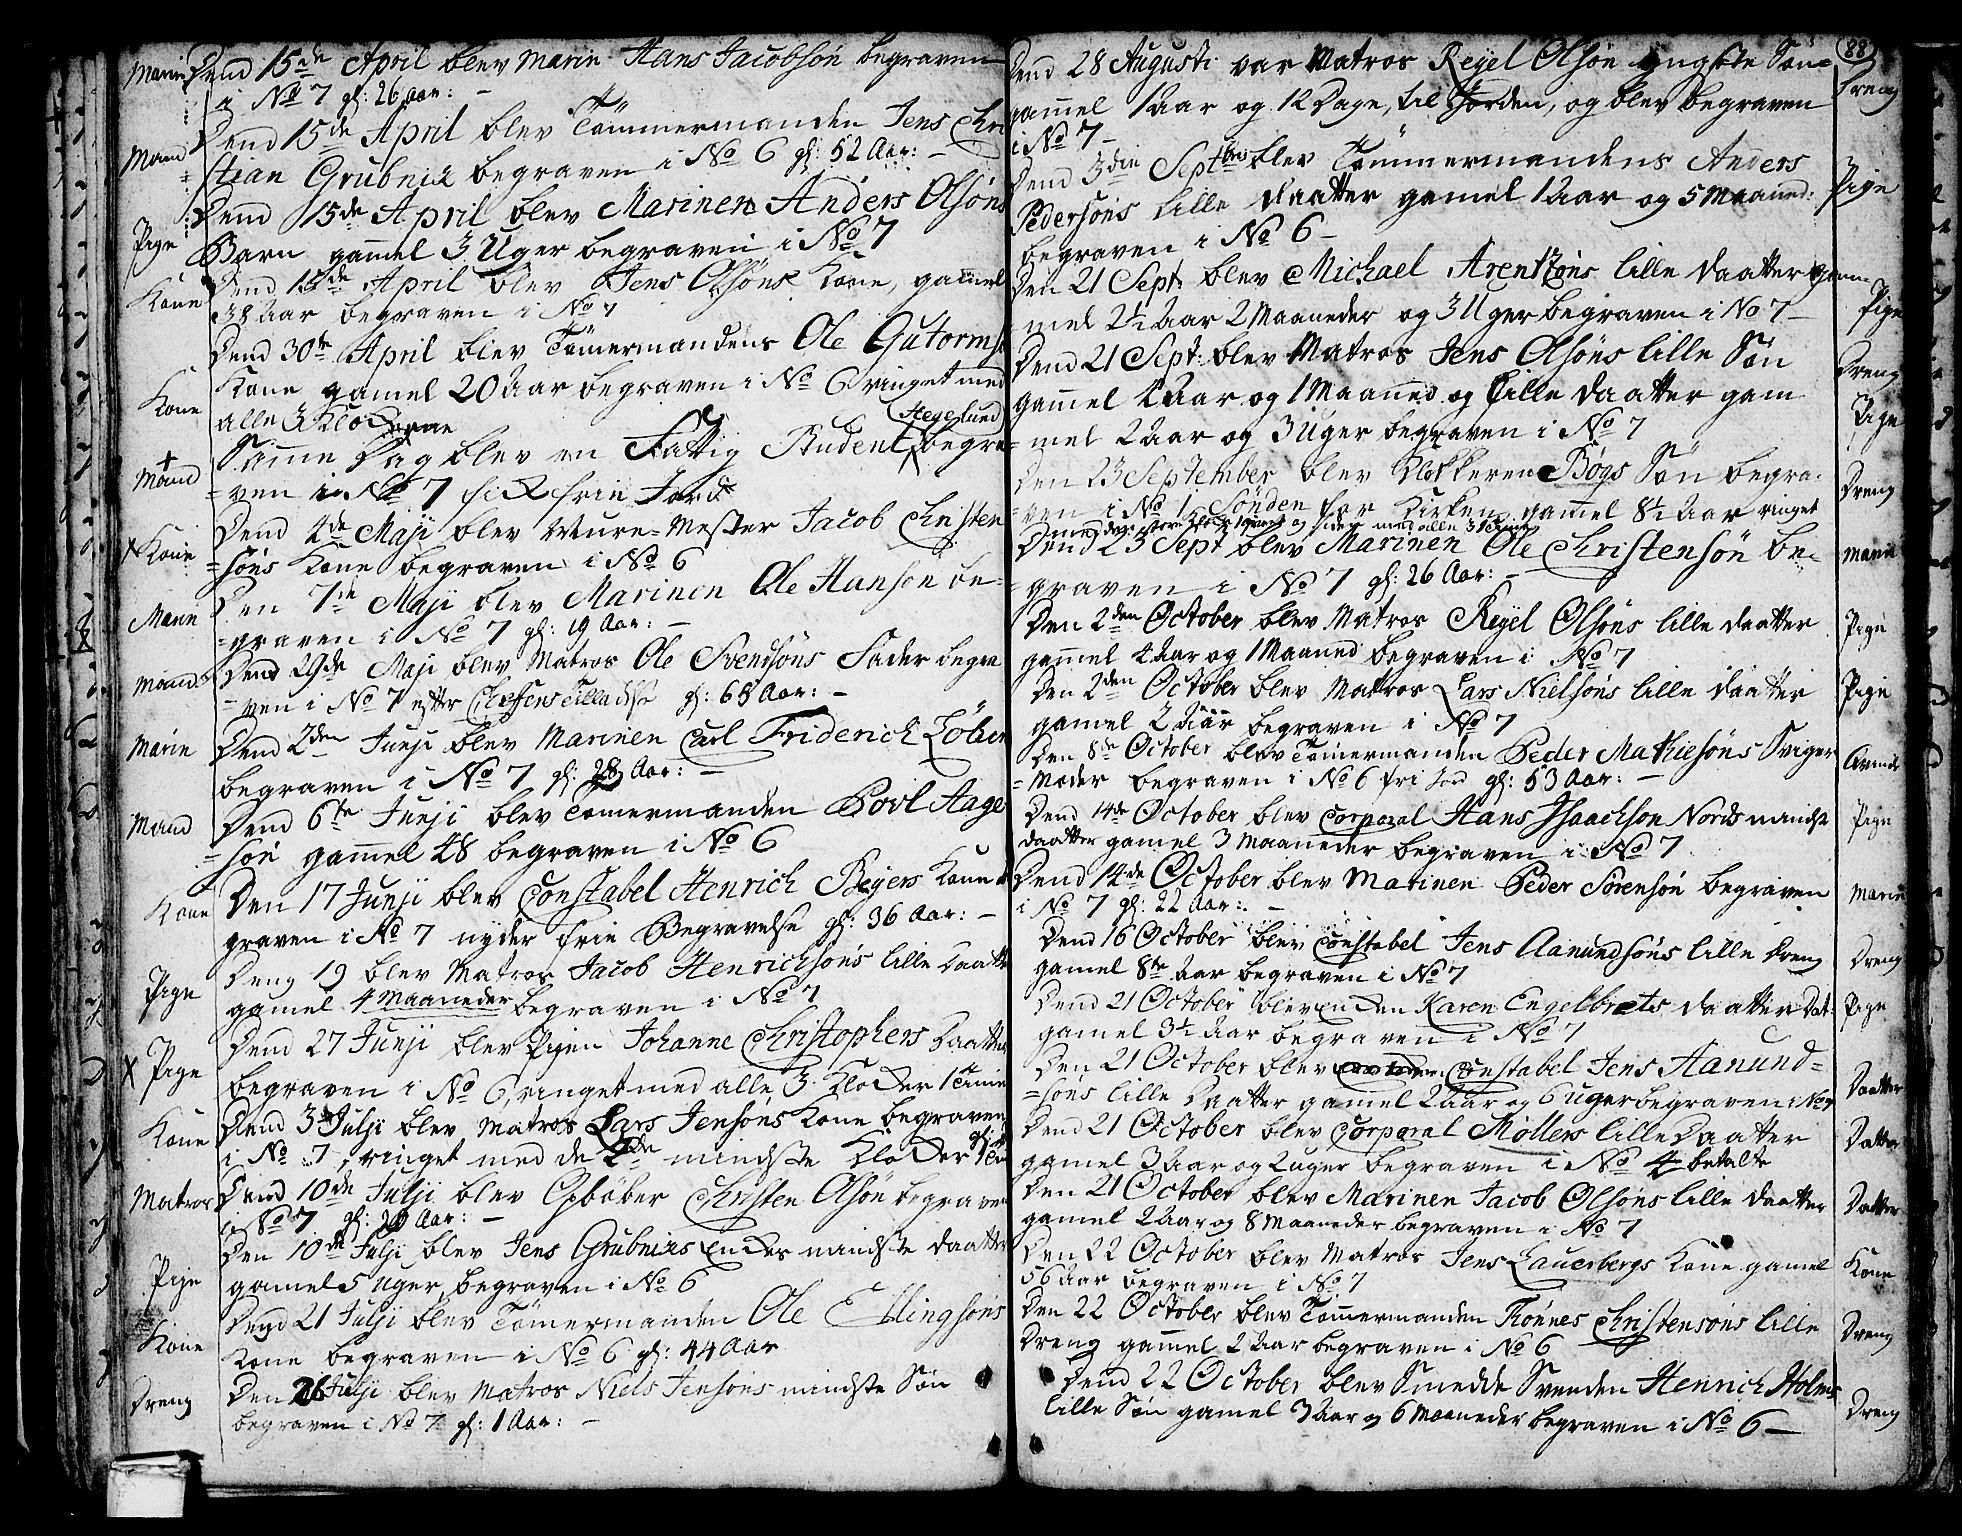 Marin Dend 15de April blev Marin Hans Jacobsøn begraven
i No 7 gl: 26 Aar: –
Mand Dend 15de April blev Tömmermanden Jens Chri
stian Grubnix begraven i No 6 gl: 52 Aar: –
Dend 15de April blev Marinen Anders Olsøns
Pige Barn gammel 3 Uger begraven i No 7
Kone Dend 15de April blev Jens Olsøns Kone, gamel
38 Aar begraven i No 7
Dend 30te April blev Tömermandens Ole Gutorms
Kone Kone gamel 20 Aar begraven i No 6 ringet med
alle 3 Klokkerne
Hegelund
+ Mand Samme Dag blev en Fattig Student begra
=ven i No 7 fik frie Jord
Dend 4de Maji blev Mure=Mester Jacob Christen
x Kone =søns Kone begraven i No 6
Den 7de Maji blev Marinen Ole Hansøn be=
Marin =graven i No 7 gl: 19 Aar: –
Mand Dend 29de Maji blev Matros Ole Svendsøns Fader begra
=ven i No 7 efter Cheffens Tilladelse gl: 68 Aar: –
Marin Dend 2den Junji blev Marinen Carl Friderich Löber
begraven i No 7 gl: 28 Aar: –
Mand Dend 6te Junji blev Tömermanden Povl Aage
=søn gammel 48 begraven i No 6
Den 17 Junji blev Constabel Henrich Beyers Kone be
Kone graven i No 7 nyder frie Begravelse gl: 36 Aar: –
Dend 19 blev Matros Jacob Henrichsøns lille Daatter
Pige gamel 4 Maaneder begraven i No 7
Dend 27 Junji blev Pigen Johanne Christophers Daatter
x Pige begraven i No 6, ringet med alle 3 Klokker 1 Time
Kone Dend 3de Julji blev Matros Lars Jensøns Kone begraven
i No 7, ringet med de 2de mindste Klokker 1 Time
Matros Dend 10de Julji blev Gevöber Christen Olsøn begraven
i No 7 gl: 20 Aar: –
Den 10de Julji blev Jens Grubnixs Enckes mindste Daatter
Pige gamel 5 Uger, begraven i No 6
Dend 21 Julji blev Tömermanden Ole Ellingsøns
Kone Kone begraven i No 6 gl: 44 Aar
Den 26 Julji blev Matros Niels Jensøns mindste Søn
Dreng begraven i No 7 gl: 1 Aar: –
88
Dend 28 Augusti var Matros Reyel Olsøn yngste Søn= Dreng
gammel 1 Aar og 12 Dage, til Jorden, og blev begraven
i No 7 –
Dend 3die Septbris blev Tömmermandens Anders
Pedersøns lille Daatter gamel 1 Aar og 5 Maaned: Pige
begraven i No 6 –
Den 21 Sept: blev Michael Arentzøns lille Daatter gam
=mel 2½ Aar 2 Maaneder og 3 Uger begraven i No 7 – Pige
Dend 21 Sept: blev Matros Jens Olsøns lille Søn Dreng
gammel 4 Aar og 1 Maaned og lille Daatter gam
=mel 2 Aar og 3 Uger begraven i No 7 Pige
Den 23 September blev Klokkeren Bøgs Søn begra= Dreng
=ven i No 1, Sønden for Kirken gammel 8½ Aar ringet
med den store Klokke 1 qvart og siden med alle 3 1 Time
Dend 23 Sept blev Marinen Ole Christensøn be= Marin
=graven i No 7 gl: 26 Aar: –
Den 2den October blev Matros Reyel Olsøns lille Daatter Pige
gammel 4 Aar og 1 Maaned begraven i No 7
Den 2den October blev Matros Lars Nielsøns lille Daatter Pige
gamel 2 Aar begraven i No 7
Den 8de October blev Tömermanden Peder Mathiesøns Sviger
=Moder begraven i No 6 fri Jord gl: 53 Aar: – Qvinde
Dend 14de October blev Corporal Hans Isaachsøn Nords mindste Pige
Daatter gamel 3 Maaneder begraven i No 7
Dend 14de October blev Marinen Peder Sørensøn begraven Marin
i No 7 gl: 22 Aar: –
Dend 16 October blev Constabel Jens Aanundsøns lille Dreng Dreng
gamel 8te Aar begraven i No 7
Dend 21 October blev Encken Karen Engelbrets Daatter Dat: Pige
gamel 3½ Aar begraven i No 7
Den 21 October blev Constabel Jens Aanund=
=søns lille Daatter gamel 2 Aar og 6 Uger begraven i No 7 Daatter
Dend 21 October blev Corporal Møllers lille Daatter Datter
gamel 3 Aar og 2 Uger begraven i No 4 betalte
Den 21 October blev Marinen Jacob Olsøns lille Daatter Datter
gamel 2 Aar og 8 Maaneder begraven i No 7
Den 22 October blev Matros Jens Lauerbergs Kone gamel Kone
56 Aar begraven i No 7
Den 22 October blev Tömmermanden Trønnes Christensøns lille
Dreng gammel 2 Aar begraven i No 6 Dreng
Dend 22 October blev Smedde Svenden Henrich Holms
lille Søn gamel 3 Aar og 6 Maaneder begraven i No 6 – Dreng